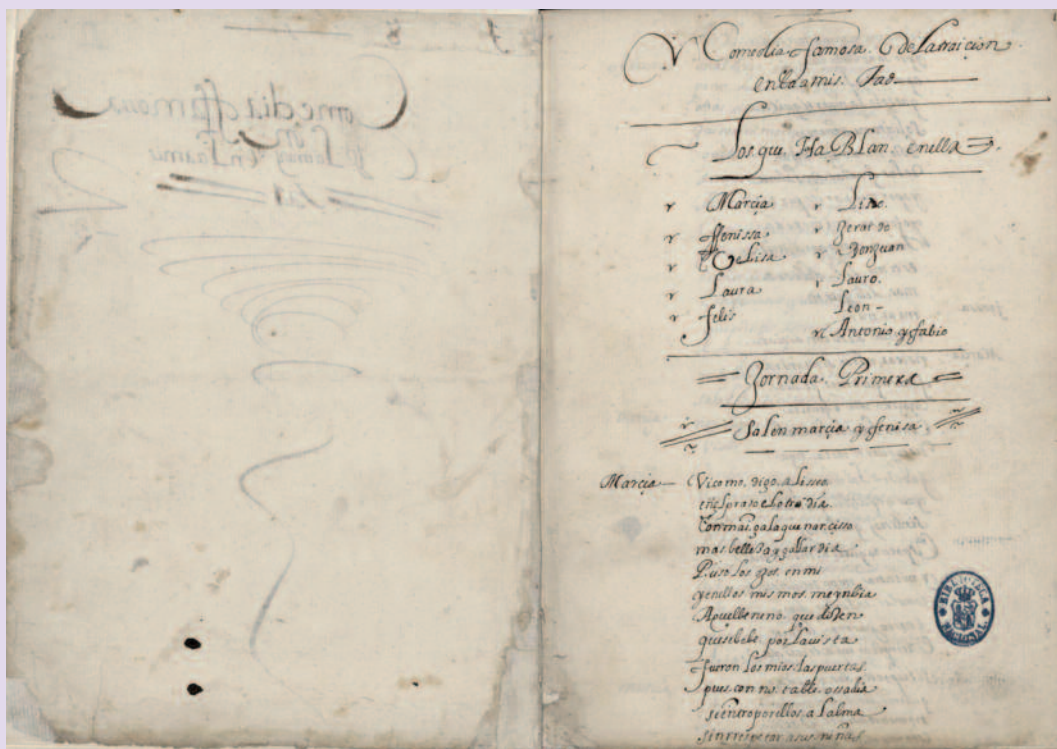 Comedia ffamosa
De la traiçion
en la amis
tad
Comedia famosa. De la traicion
en la a mis. Tad
Los que Ha Blan en ella
Marcia
ffenissa
Belisa
Laura
felis
Liseo.
Gerardo
Donjuan
Lauro.
Leon
Antonio y fabio
Jornada. Primera
salen marcia y fenisa
Marcia Vi como. digo. a Liseo
en el prado el otro dia.
Con mas. gala que narcisso
mas. belleza y gallardia
Puso los ojos. en mi
y en ellos mis mos. me ynbia
Aquel beneno que diçen
que se bebe. por la vista
fueron los mios. las puertas.
pues. con no table. ossadia
se entro por ellos. a lalma
sin rrespetar a sus. niñas
BIBLIOTECA
NACIONAL